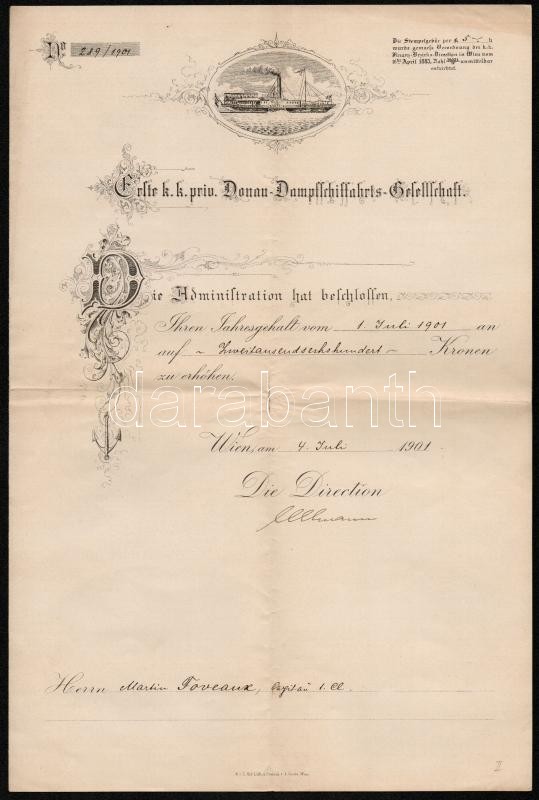 No 289/1901
Die Stempelgebür per K 5 — h
wurde gemäss Verordnung der k.k.
Finanz-Bezirks-Direction in Wien vom
April 1883, Zahl unmittelbar
entrichtet.
Erste k. k. priv. Donau-Dampfschiffahrts-Gesellschaft.
Die Administration hat beschlossen,
Ihren Jahresgehalt vom 1. Juli 1901 an
auf ~ Zweitausendsechshundert ~ Kronen
zu erhöhen.
darabanth
Wien, am 4. Juli 1901.
Die Direction
Ullmann
Herrn Martin Toveaux, Capitän 1. Cl.
II